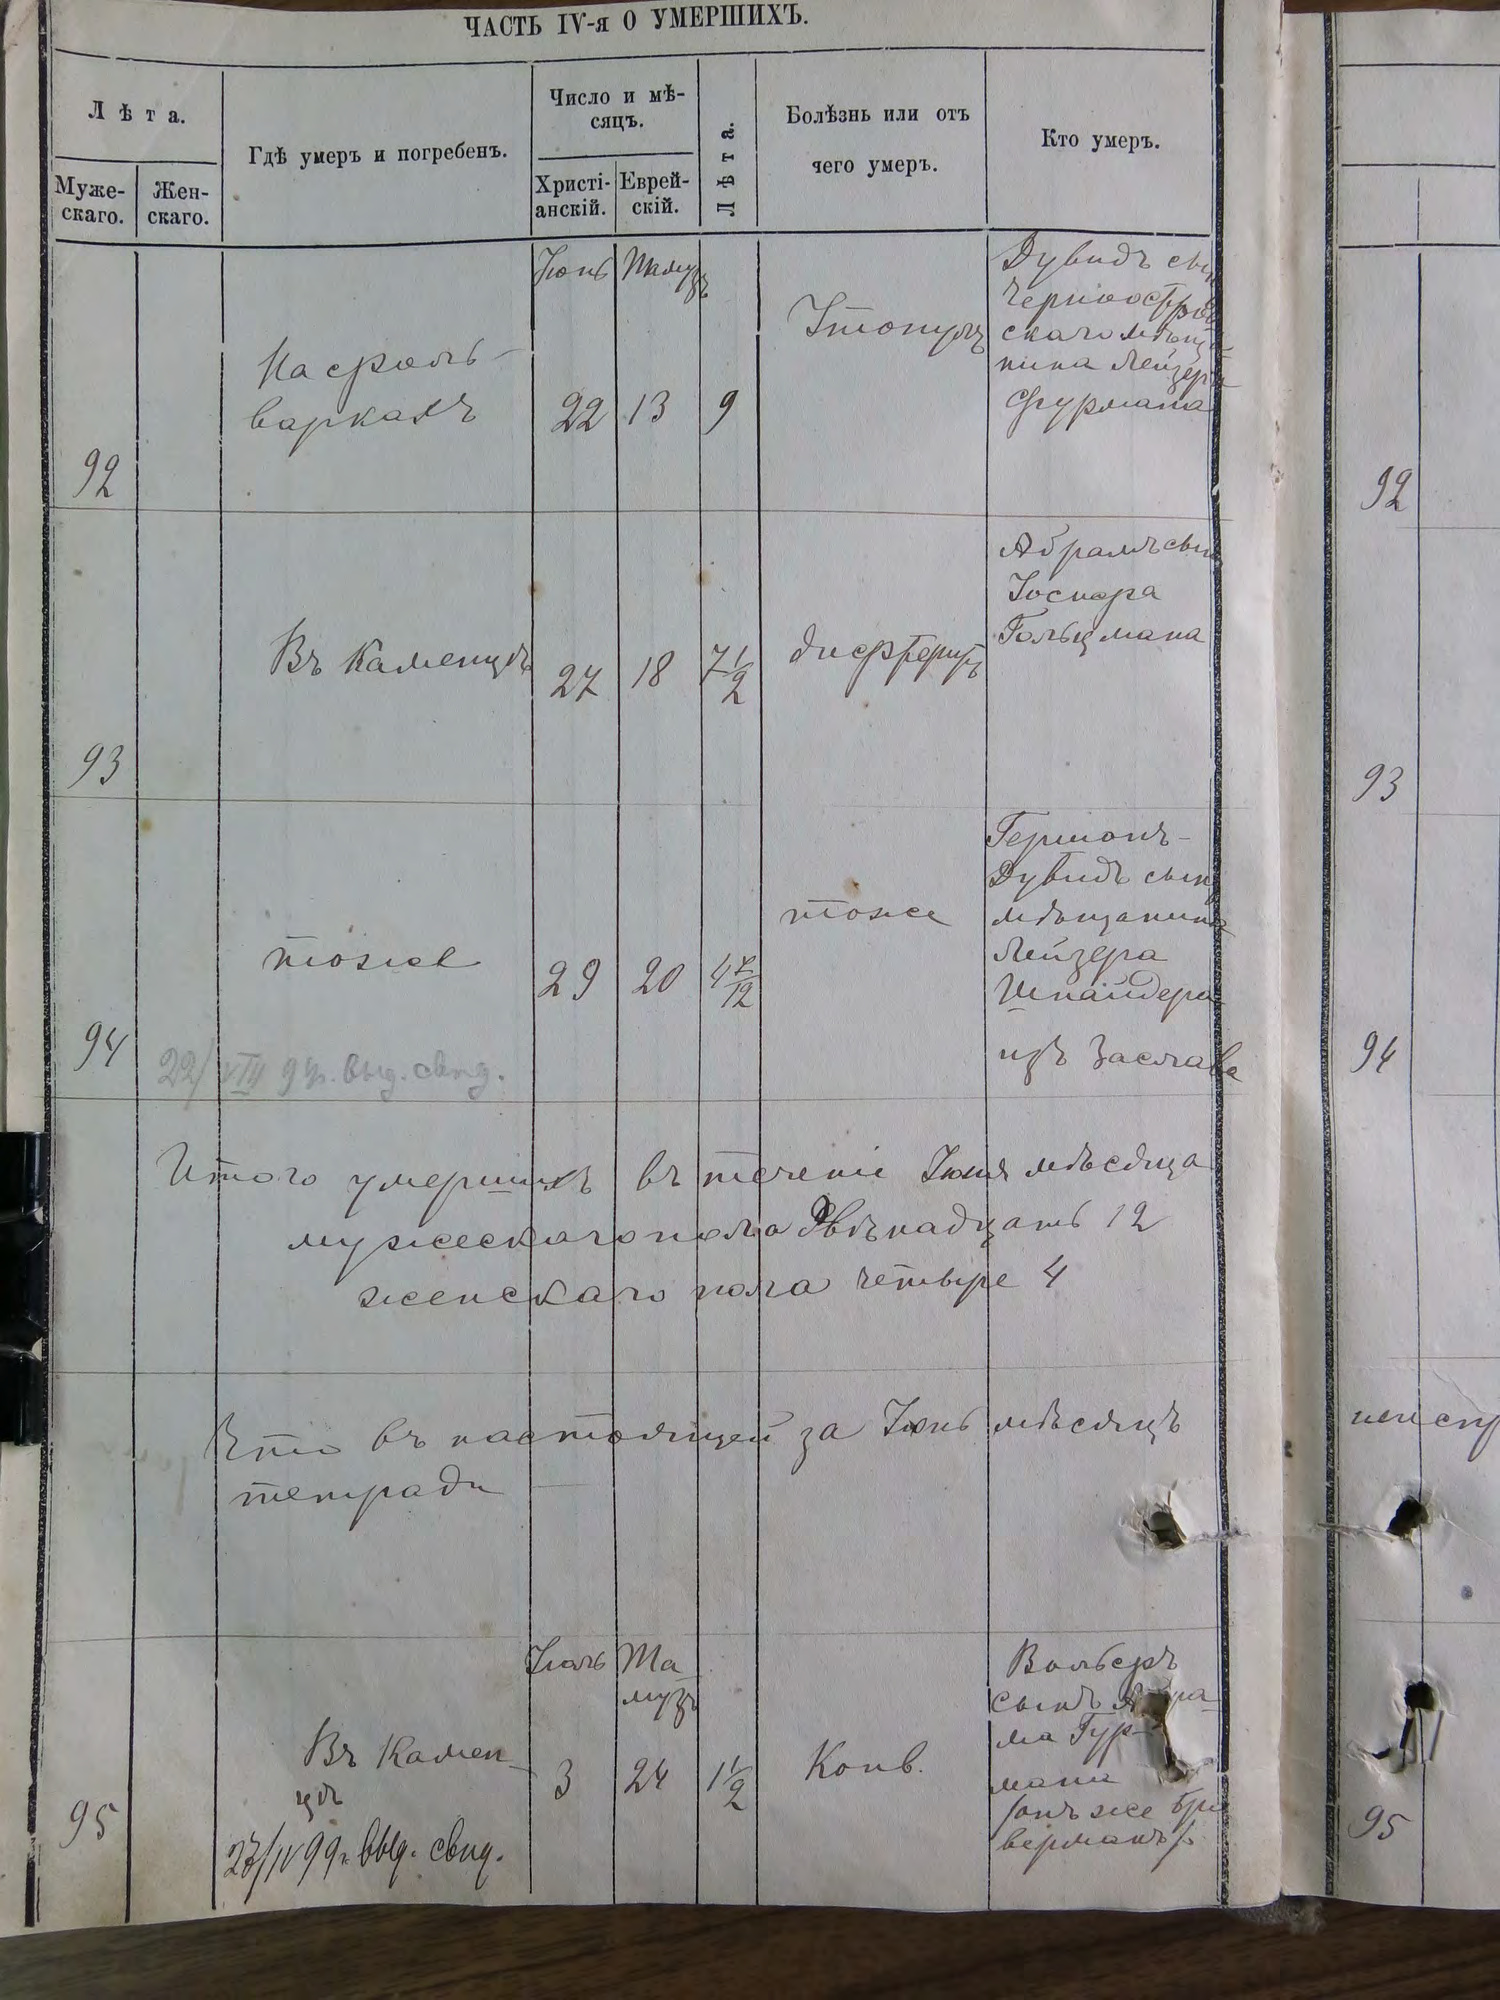 ЧАСТЬ IV-я О УМЕРШИХЪ.
Лѣта.
Муже-
скаго.
Жен-
скаго.
Гдѣ умеръ и погребенъ.
Число и мѣ-
сяцъ.
Христі-
анскій.
Еврей-
скій.
Лѣта.
Болѣзнь или отъ
чего умеръ.
Кто умеръ.
92
На фоль-
варкахъ
Іюнь
22
Тамузъ
13
9
Утопулъ
Дувидъ сынъ
Черноостров
скаго мѣща-
нина Лейзера
Фурмана
93
Въ Каменцѣ
27
18
7 1/2
дифтеритъ
Абрамъ сынъ
Іосифа
Гольцмана
94
тоже
29
20
4 7/12
тоже
Гершонъ-
Дувидъ сынъ
мѣщанина
Лейзера
Шнайдера
изъ Заслава
22/VIII 9 г. выд. свид.
Итого умершихъ въ теченіе Іюня мѣсяца
мужескаго пола Двѣнадцать 12
женскаго пола четыре 4
Что въ настоящей за Іюнь мѣсяцъ
тетради
95
Въ Камен-
цѣ
Іюль
3
Та-
музъ
24
1 1/2
Конв.
Вольфъ
сынъ Абра-
ма Гур-
мана
/онъ же Бри
верманъ/.
23/IV 99 г. выд. свид.
92
93
94
95